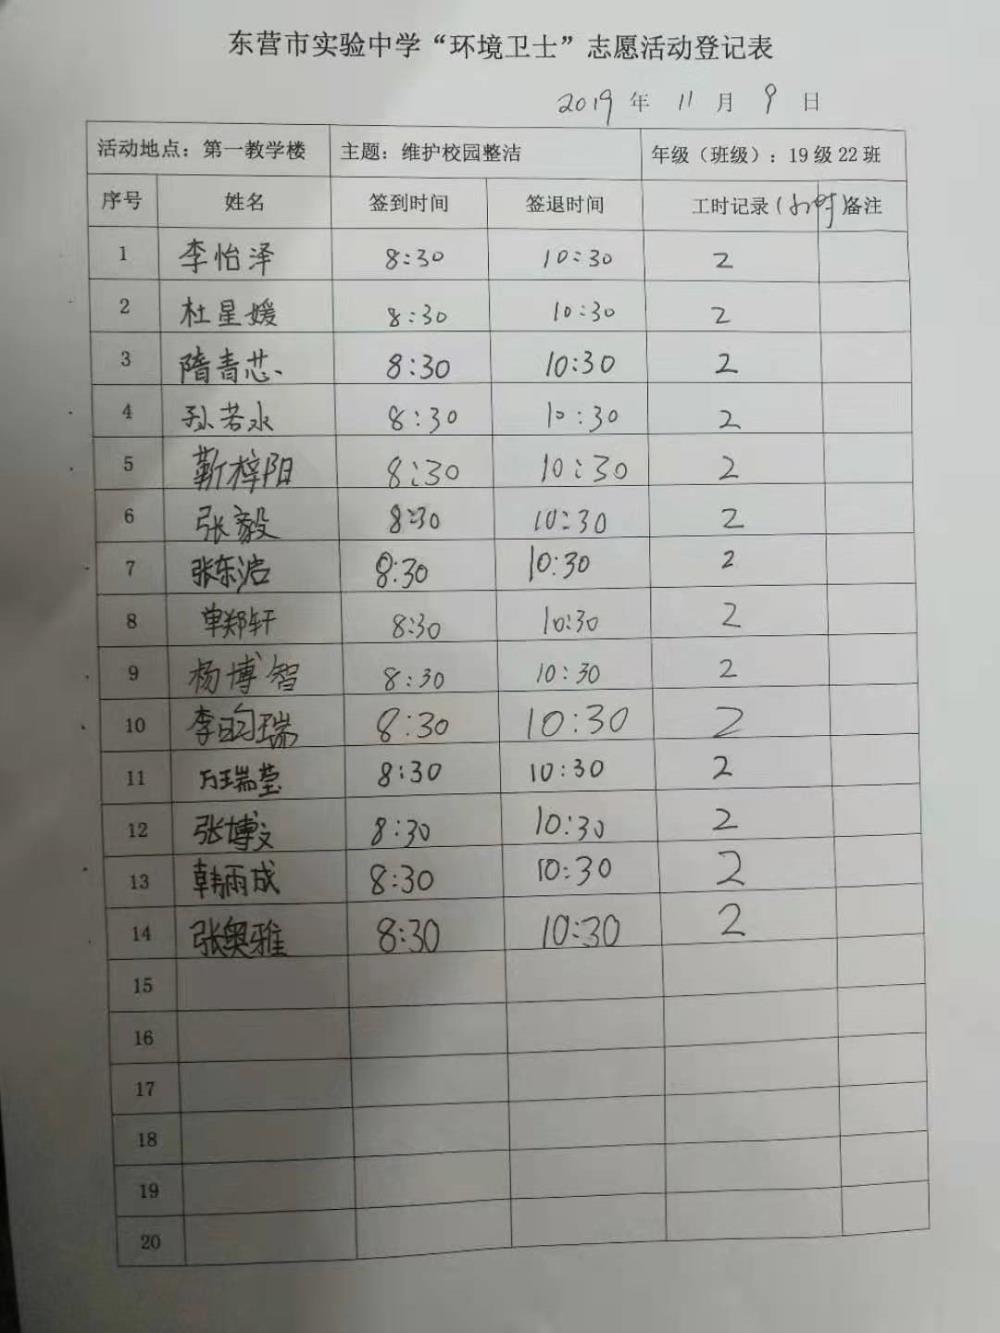 东营市实验中学“环境卫士”志愿活动登记表
2019 年 11 月 9 日
活动地点：第一教学楼 主题：维护校园整洁 年级（班级）：19 级 22 班
序号 姓名 签到时间 签退时间 工时记录(小时) 备注
1 李怡泽 8:30 10:30 2
2 杜星媛 8:30 10:30 2
3 隋青芯 8:30 10:30 2
4 孙若水 8:30 10:30 2
5 靳梓阳 8:30 10:30 2
6 张毅 8:30 10:30 2
7 张东洁 8:30 10:30 2
8 单郑轩 8:30 10:30 2
9 杨博智 8:30 10:30 2
10 李昀瑞 8:30 10:30 2
11 万瑞莹 8:30 10:30 2
12 张博文 8:30 10:30 2
13 韩雨成 8:30 10:30 2
14 张奥雅 8:30 10:30 2
15
16
17
18
19
20